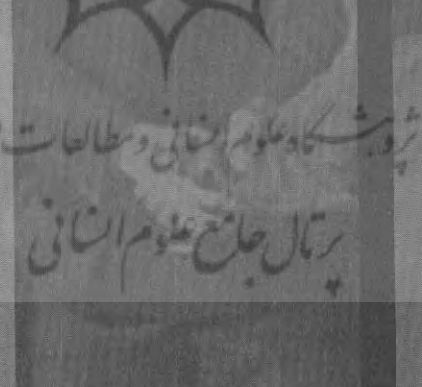 پژوهشگاه علوم انسانی و مطالعات
پرتال جامع علوم انسانی